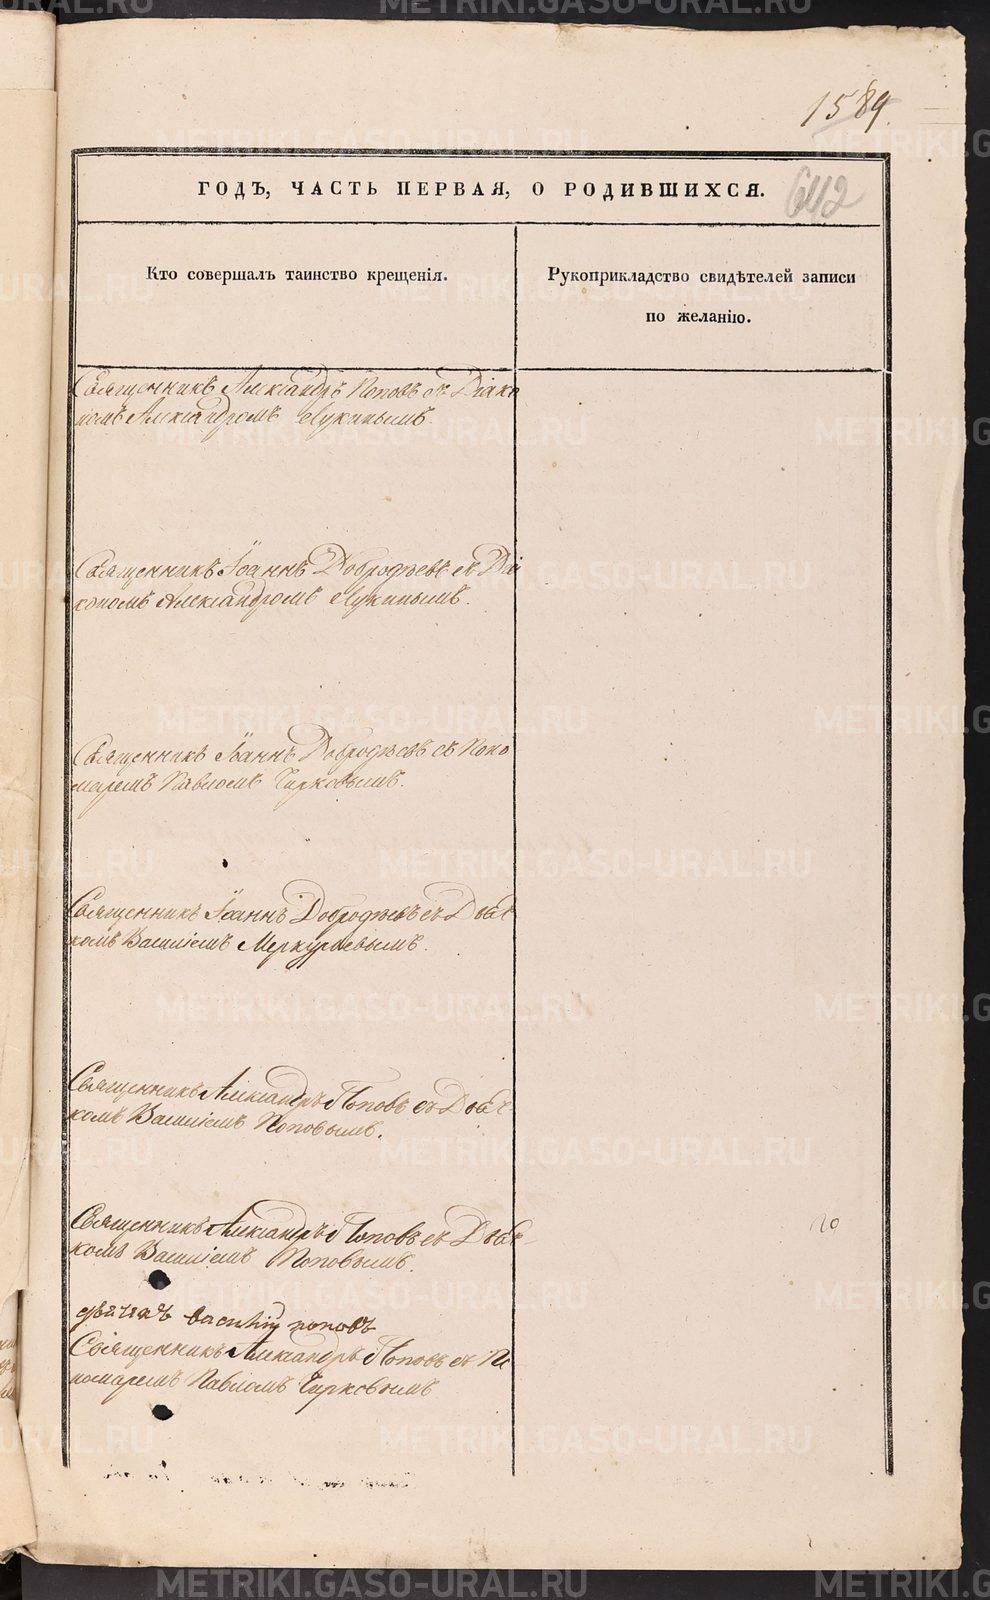 1589.
ГОДЪ, ЧАСТЬ ПЕРВАЯ, О РОДИВШИХСЯ.
642
Кто совершалъ таинство крещенія.
Рукоприкладство свидѣтелей записи
по желанію.
Священникъ Александръ Поповъ съ Діако
номъ Александромъ Лукинымъ.
Священникъ Іоаннъ Добродѣевъ съ Діа
кономъ Александромъ Лукинымъ.
Священникъ Іоаннъ Добродѣевъ съ Поно
маремъ Павломъ Чирковымъ.
Священникъ Іоаннъ Добродѣевъ съ Дьяч
комъ Василіемъ Меркурьевымъ.
Священникъ Александръ Поповъ съ Дьяч
комъ Василіемъ Поповымъ.
Священникъ Александръ Поповъ съ Дьяч
комъ Василіемъ Поповымъ.
дьячекъ василій поповъ
Священникъ Александръ Поповъ съ По
номаремъ Павломъ Чирковымъ
METRIKI.GASO-URAL.RU